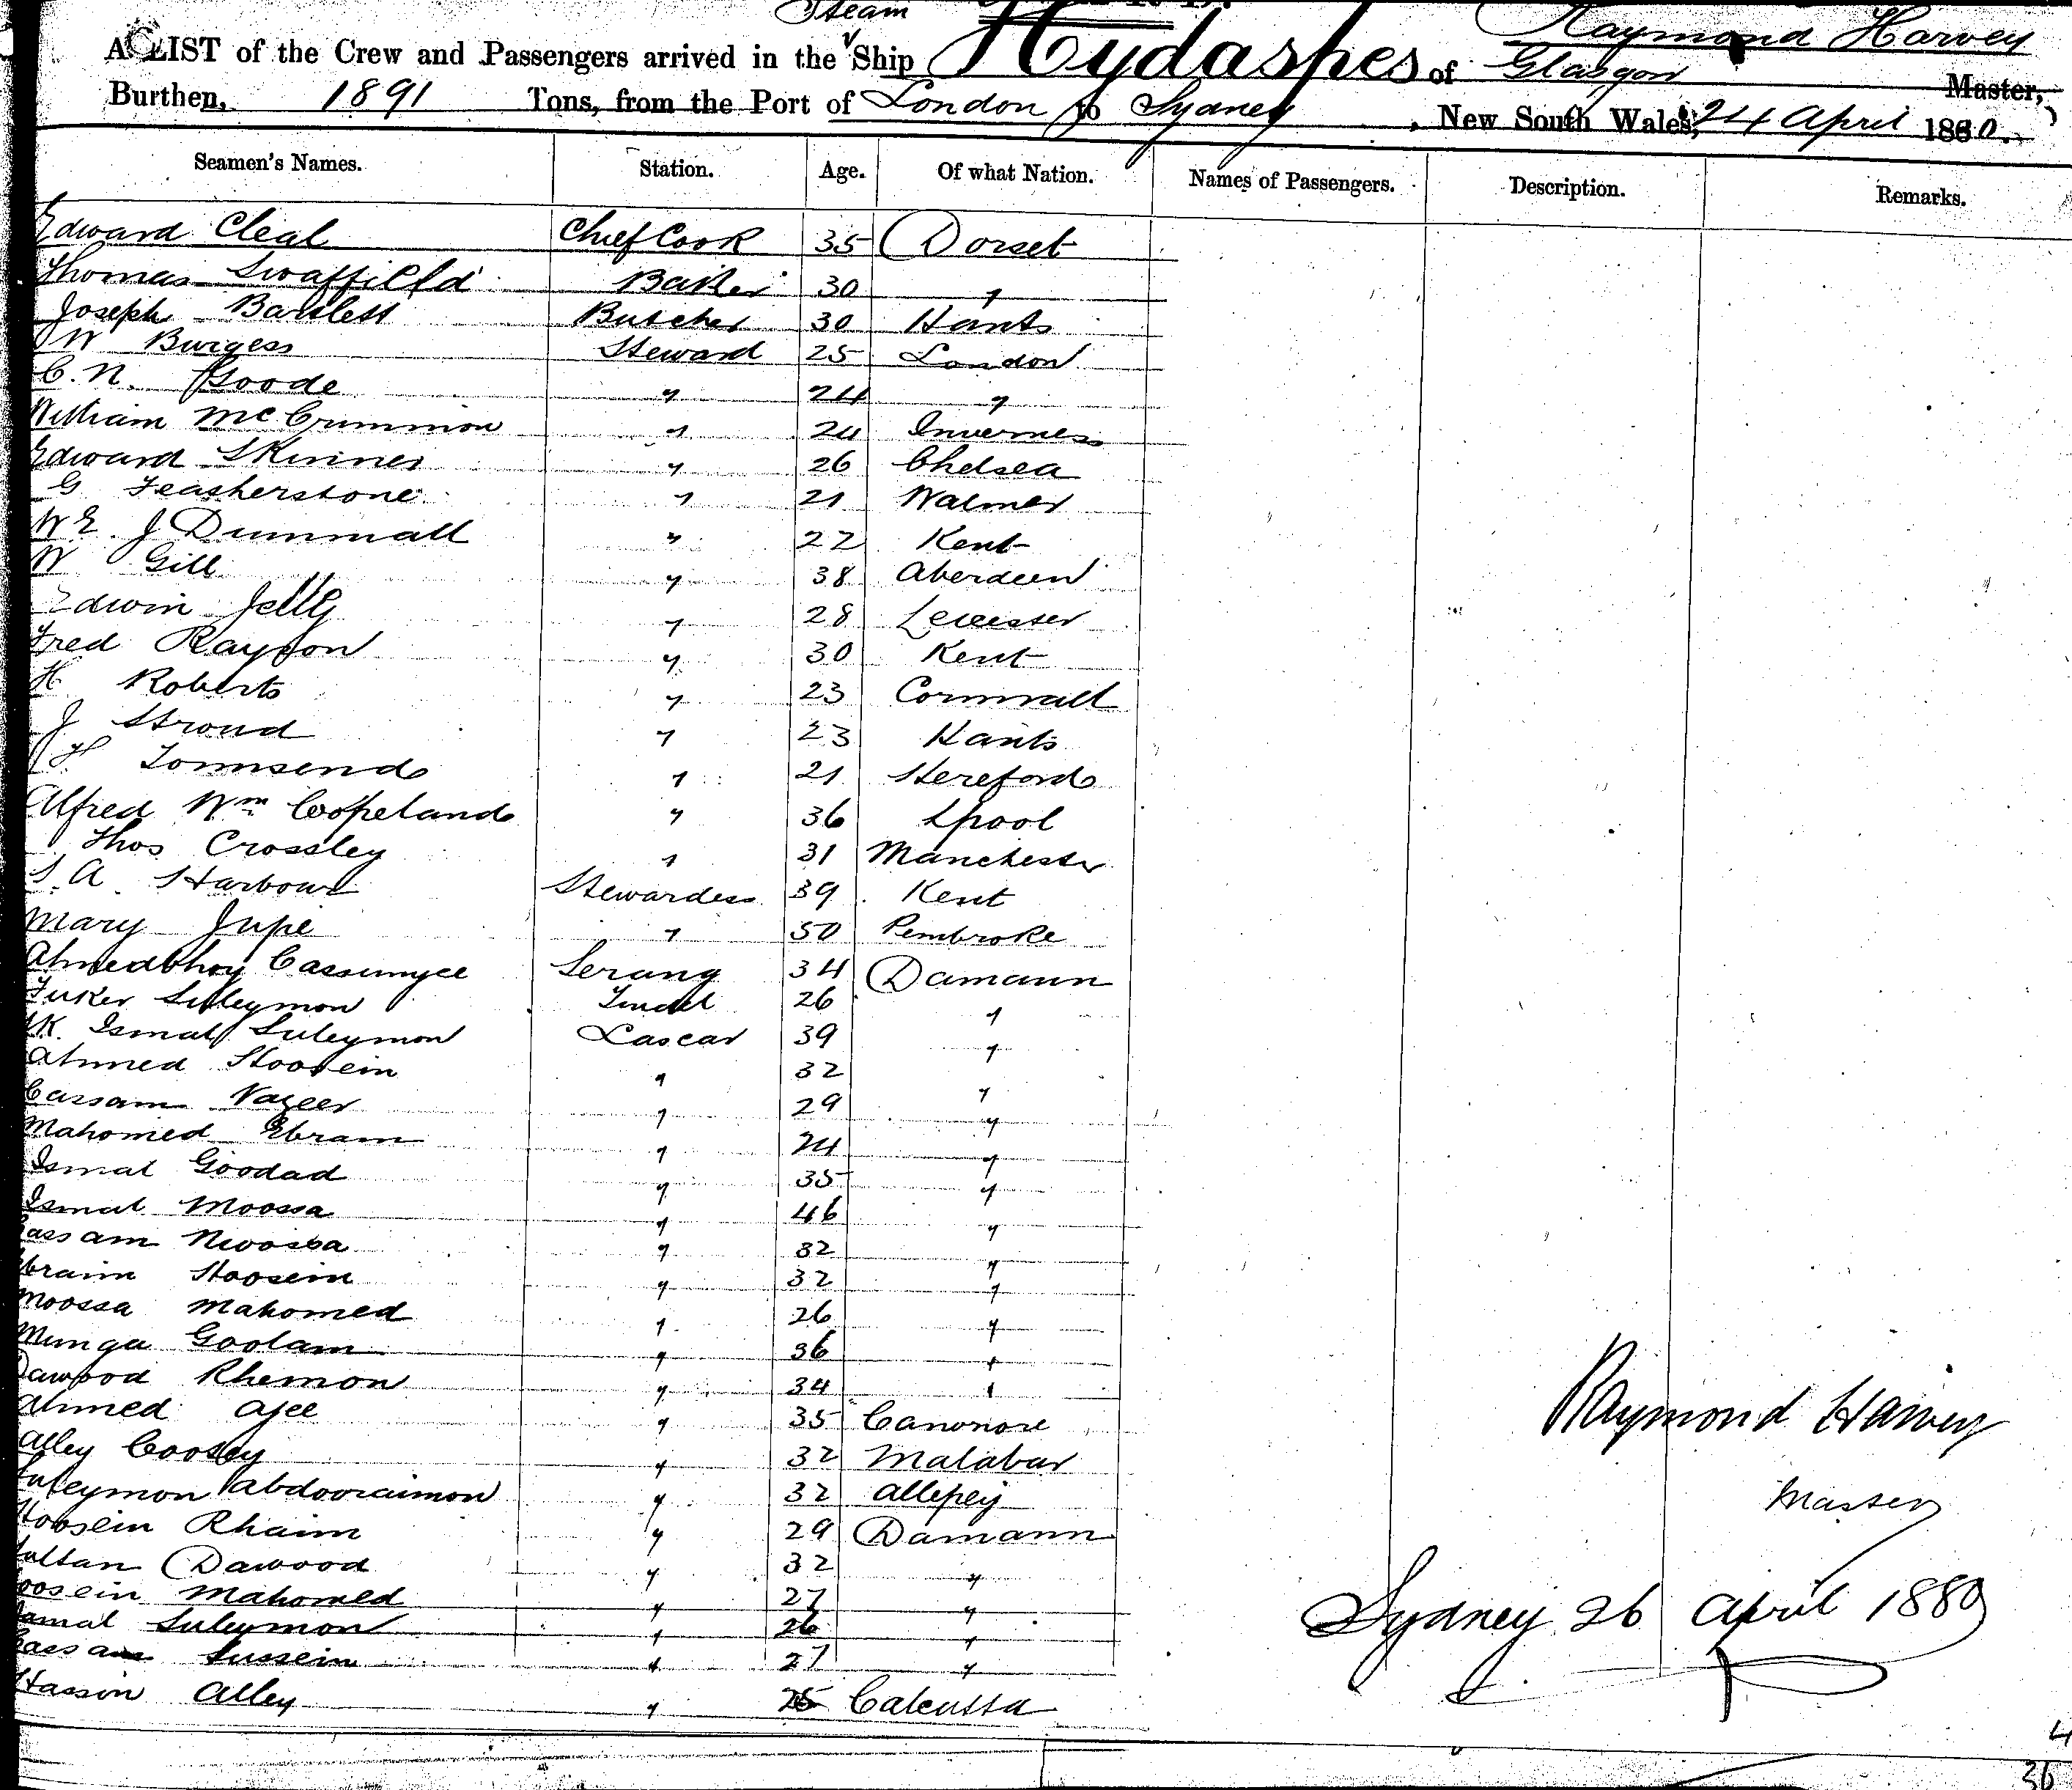 Steam
Raymond Harvey
A LIST of the Crew and Passengers arrived in the Ship Hydaspes of Glasgow Master,
Burthen, 1891 Tons, from the Port of London to Sydney, New South Wales, 24 April 1880.
Seamen's Names. Station. Age. Of what Nation. Names of Passengers. Description. Remarks.
Edward Cleal Chief Cook 35 Dorset
Thomas Swaffield Baker 30 "
Joseph Bartlett Butcher 30 Hants
W Burgess Steward 25 London
C. N. Goode " 24 "
William McCrummion " 24 Inverness
Edward Skinner " 26 Chelsea
G Featherstone " 21 Walmer
W E. J Dummall " 22 Kent
W Gill " 38 Aberdeen
Edwin Jelly " 28 Leicester
Fred Rayson " 30 Kent
H Roberts " 23 Cornwall
J Stroud " 23 Hants
H Townsend " 21 Hereford
Alfred Wm Copeland " 36 Lpool
Thos Crossley " 31 Manchester
S. A Harbour Stewardess 39 Kent
Mary Jupe " 50 Pembroke
Ahmedbhoy Cassumjee Serang 34 Damann
Fuker Suleymon Tindel 26 "
Ismal Suleymon Lascar 39 "
Ahmed Hoosein " 32 "
Cassam Vazeer " 29 "
Mahomed Ebram " 24 "
Ismal Goodad " 35 "
Ismal Moossa " 46 "
Cassam Moossa " 32 "
Ebraim Hoosein " 32 "
Moossa Mahomed " 26 "
Munga Goolam " 36 "
Dawood Rhemon " 34 "
Ahmed Ajee " 35 Canonore
Alley Coossy " 32 Malabar
Suleymon Abdooraimon " 32 Allepey
Hoosein Rhaim " 29 Damann
Sultan Dawood " 32 "
Hoosein Mahomed " 27 "
Jamal Suleymon " 26 "
Cassam Sussein " 27 "
Hassin Alley " 25 Calcutta
Raymond Harvey
Master
Sydney 26 April 1880
4
36